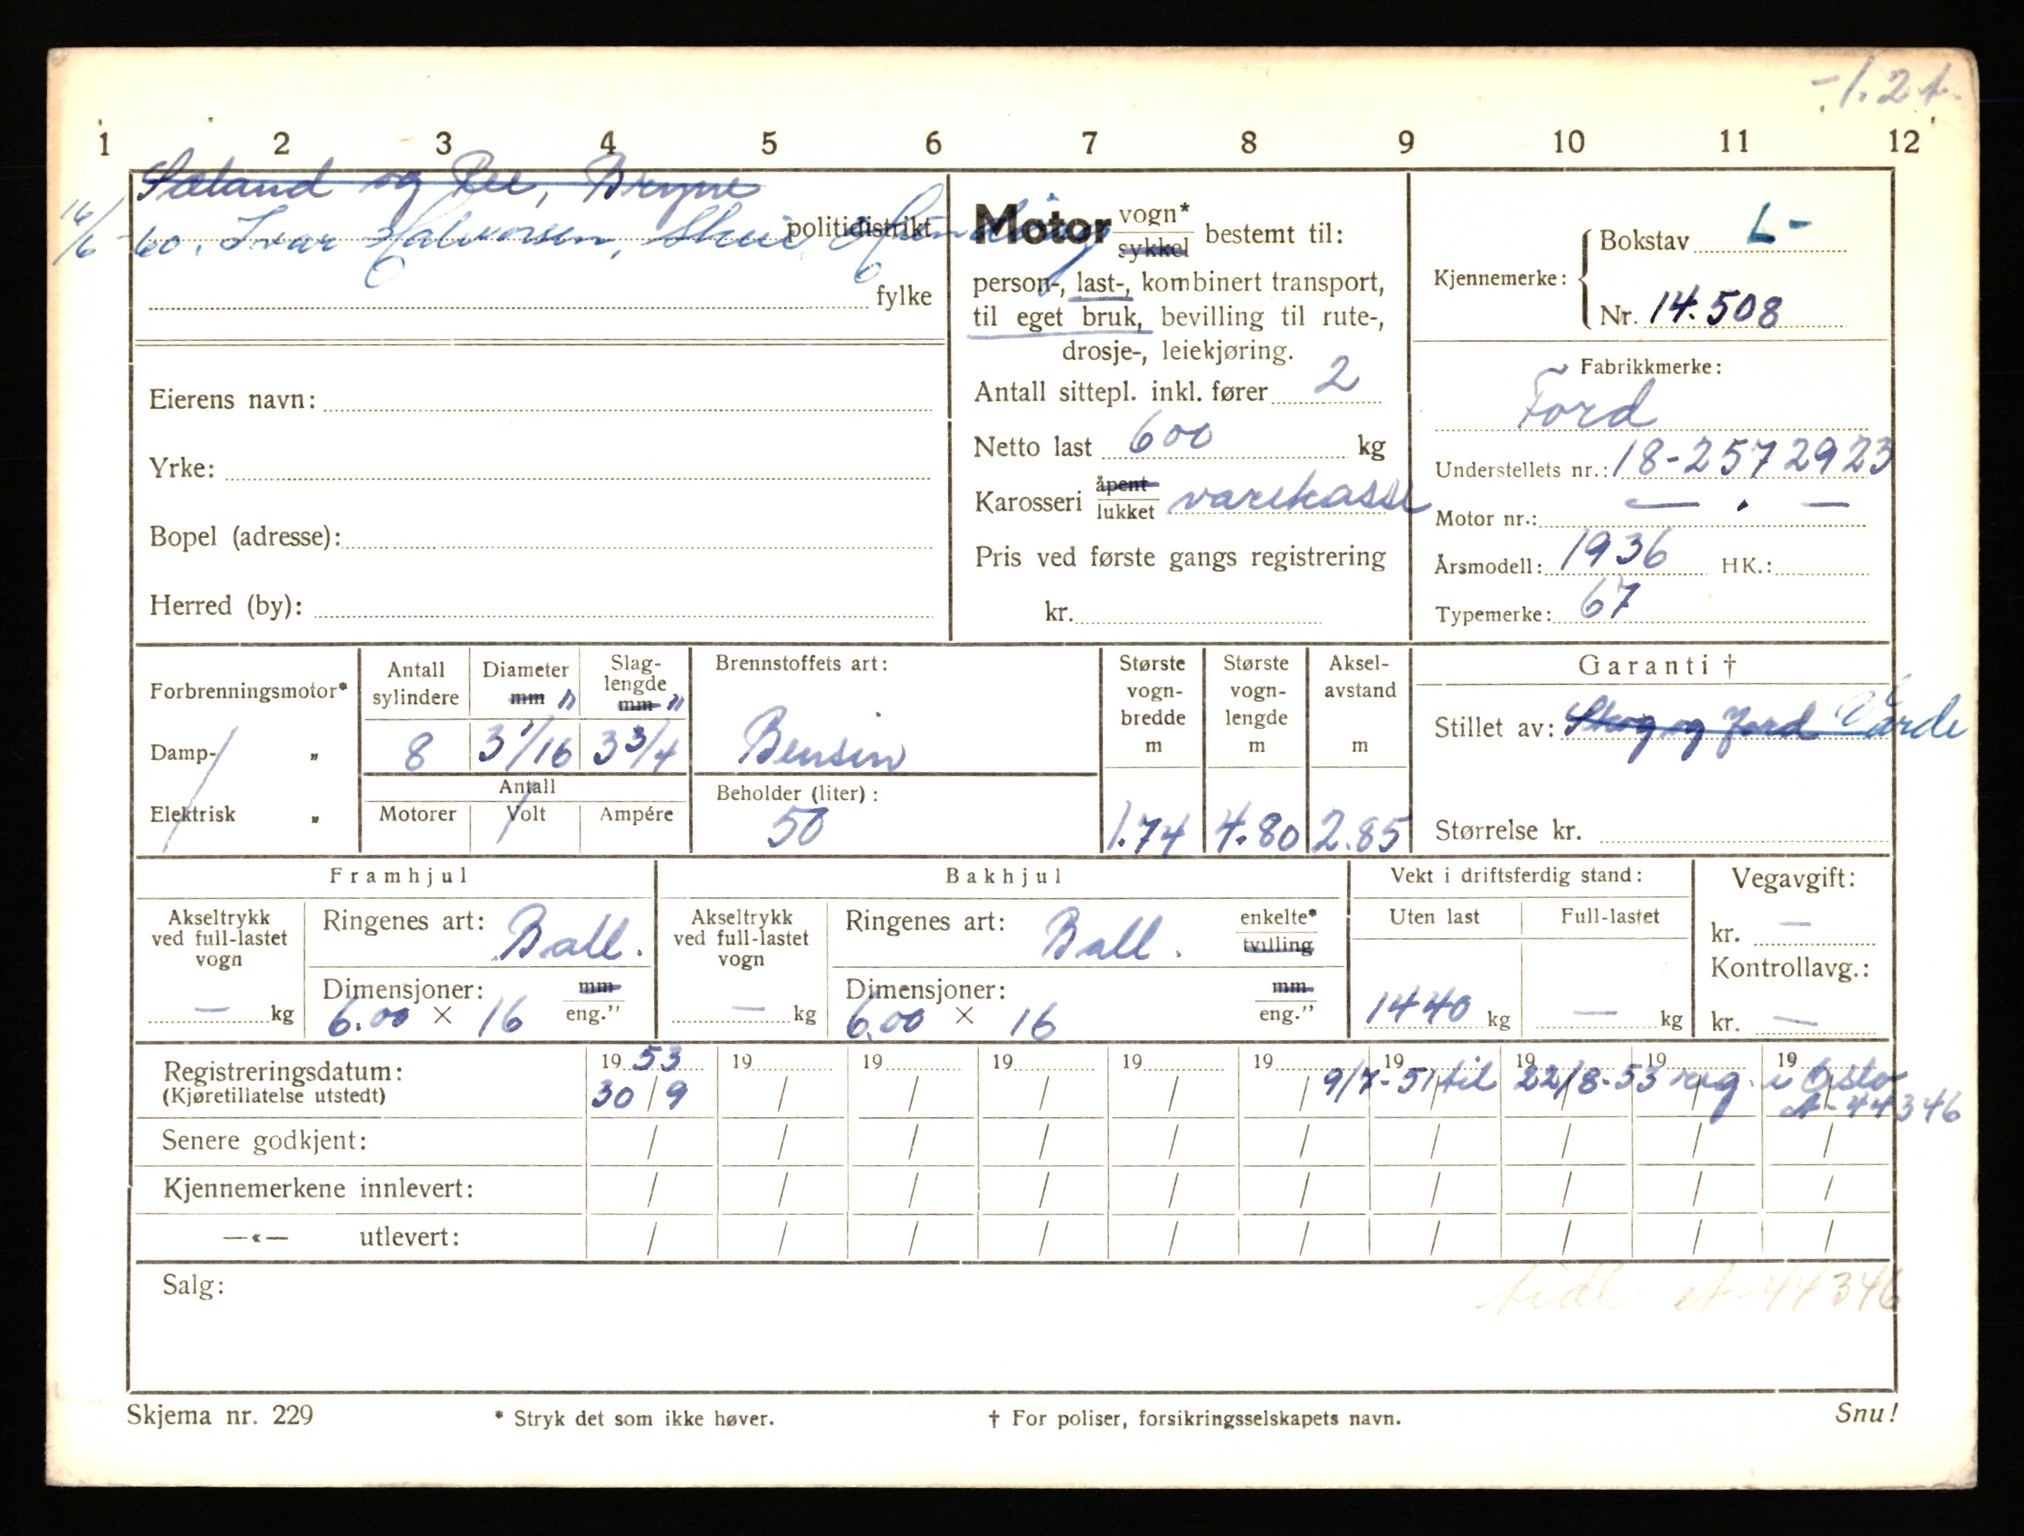 -1.2t.
1 2 3 4 5 6 7 8 9 10 11 12
Sæland og Ree, Bryne
16/6-60. Ivar Halvorsen, politidistrikt
fylke
Eierens navn:
Yrke:
Bopel (adresse):
Herred (by):
Motor vogn* sykkel bestemt til:
person-, last-, kombinert transport,
til eget bruk, bevilling til rute-,
drosje-, leiekjøring.
Antall sittepl. inkl. fører 2
Netto last 600 kg
Karosseri åpent lukket varekasse
Pris ved første gangs registrering
kr.
Kjennemerke: Bokstav L-
Nr. 14.508
Fabrikkmerke:
Ford
Understellets nr.: 18-2572923
Motor nr.: — . —
Årsmodell: 1936 HK.:
Typemerke: 67
Forbrenningsmotor*
Damp- „
Elektrisk „
Antall sylindere 8
Diameter mm " 3 1/16
Slag-lengde mm " 3 3/4
Antall
Motorer Volt Ampére
Brennstoffets art:
Bensin
Beholder (liter):
50
Største vogn-bredde m 1.74
Største vogn-lengde m 4.80
Aksel-avstand m 2.85
Garanti †
Stillet av: Skog og Jord Varde
Størrelse kr.
Framhjul
Akseltrykk ved full-lastet vogn — kg
Ringenes art: Ball.
Dimensjoner: mm
6.00 × 16 eng."
Bakhjul
Akseltrykk ved full-lastet vogn — kg
Ringenes art: Ball. enkelte* tvilling
Dimensjoner: mm
6.00 × 16 eng."
Vekt i driftsferdig stand:
Uten last Full-lastet
1440 kg — kg
Vegavgift:
kr. —
Kontrollavg.:
kr. —
Registreringsdatum: 19 53 19 19 19 19 19 19 19 19 19
(Kjøretillatelse utstedt) 30/9 / / / / / 9/7-51 til 22/8-53 reg. i Oslo
A-44346
Senere godkjent: / / / / / / / / / /
Kjennemerkene innlevert: / / / / / / / / / /
—«— utlevert: / / / / / / / / / /
Salg: tidl A-44346
Skjema nr. 229 * Stryk det som ikke høver. † For poliser, forsikringsselskapets navn. Snu!